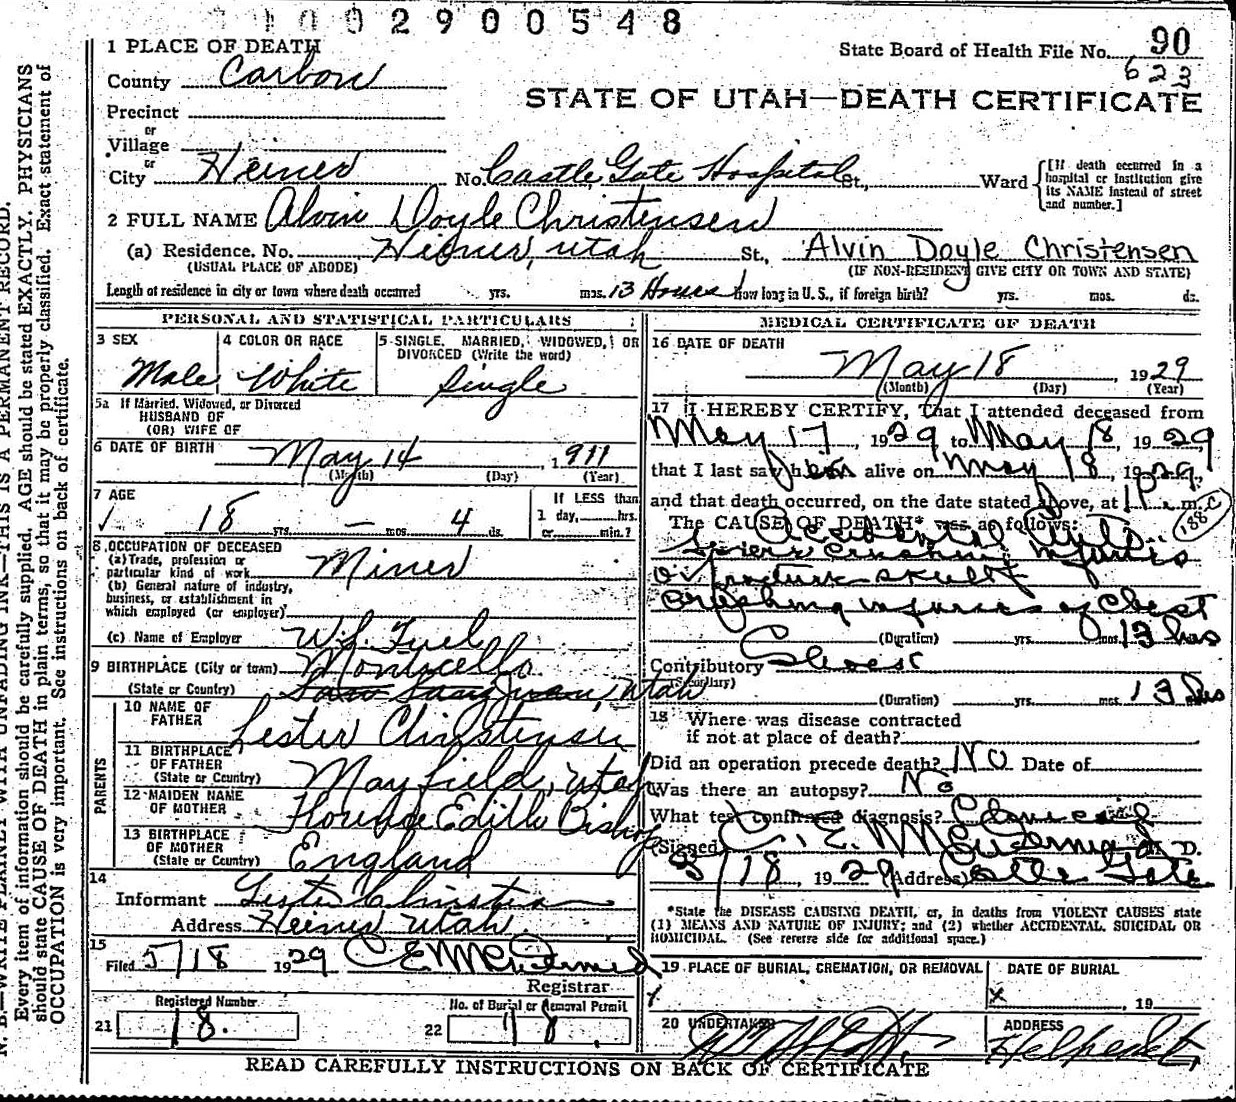 11002900548
1 PLACE OF DEATH
State Board of Health File No. 90
623
County Carbon
STATE OF UTAH—DEATH CERTIFICATE
Precinct
or
Village
or
City Heiner No. Castle Gate Hospital St., Ward
[If death occurred in a hospital or institution give its NAME instead of street and number.]
2 FULL NAME Alvin Doyle Christensen
(a) Residence. No. Heiner, Utah St., Alvin Doyle Christensen
(USUAL PLACE OF ABODE) (IF NON-RESIDENT GIVE CITY OR TOWN AND STATE)
Length of residence in city or town where death occurred yrs. mos. 13 Hours How long in U.S., if foreign birth? yrs. mos. ds.
PERSONAL AND STATISTICAL PARTICULARS
3 SEX
Male
4 COLOR OR RACE
White
5 SINGLE, MARRIED, WIDOWED, OR DIVORCED (Write the word)
Single
5a If Married, Widowed, or Divorced
HUSBAND OF
(OR) WIFE OF
6 DATE OF BIRTH May 14, 1911
(Month) (Day) (Year)
7 AGE
18 yrs. — mos. 4 ds.
If LESS than
1 day, hrs.
or min.?
8 OCCUPATION OF DECEASED
(a) Trade, profession or particular kind of work Miner
(b) General nature of industry, business, or establishment in which employed (or employer)
(c) Name of Employer Fuel
9 BIRTHPLACE (City or town) Monticello
(State or Country) Utah
PARENTS
10 NAME OF FATHER Lester Christensen
11 BIRTHPLACE OF FATHER (State or Country) Mayfield, Utah
12 MAIDEN NAME OF MOTHER Florence Edith Bishop
13 BIRTHPLACE OF MOTHER (State or Country) England
14
Informant Lester Christensen
Address Heiner Utah
15
Filed 5/18 1929 C E McDermid
Registrar
21 Registered Number
18.
22 No. of Burial or Removal Permit
18.
MEDICAL CERTIFICATE OF DEATH
16 DATE OF DEATH
May 18, 1929
(Month) (Day) (Year)
17 I HEREBY CERTIFY, That I attended deceased from
May 17, 1929 to May 18, 1929,
that I last saw him alive on May 18, 1929,
and that death occurred, on the date stated above, at 1 P. m.
The CAUSE OF DEATH* was as follows:
188c
Accidental
crushing injuries
fracture skull
crushing injuries of chest
(Duration) yrs. mos. 13 hrs
Contributory
(Secondary)
(Duration) yrs. mos. 13 hrs
18 Where was disease contracted
if not at place of death?
Did an operation precede death? No Date of
Was there an autopsy? No
What test confirmed diagnosis? Clinical
(Signed) C. E. McDermid M. D.
5/18, 1929 (Address) Castle Gate
*State the DISEASE CAUSING DEATH, or, in deaths from VIOLENT CAUSES state
(1) MEANS AND NATURE OF INJURY; and (2) whether ACCIDENTAL, SUICIDAL OR
HOMICIDAL. (See reverse side for additional space.)
19 PLACE OF BURIAL, CREMATION, OR REMOVAL
DATE OF BURIAL
x , 19
20 UNDERTAKER
ADDRESS
READ CAREFULLY INSTRUCTIONS ON BACK OF CERTIFICATE
N. B.—WRITE PLAINLY WITH UNFADING INK—THIS IS A PERMANENT RECORD.
Every item of information should be carefully supplied. AGE should be stated EXACTLY. PHYSICIANS
should state CAUSE OF DEATH in plain terms, so that it may be properly classified. Exact statement of
OCCUPATION is very important. See instructions on back of certificate.